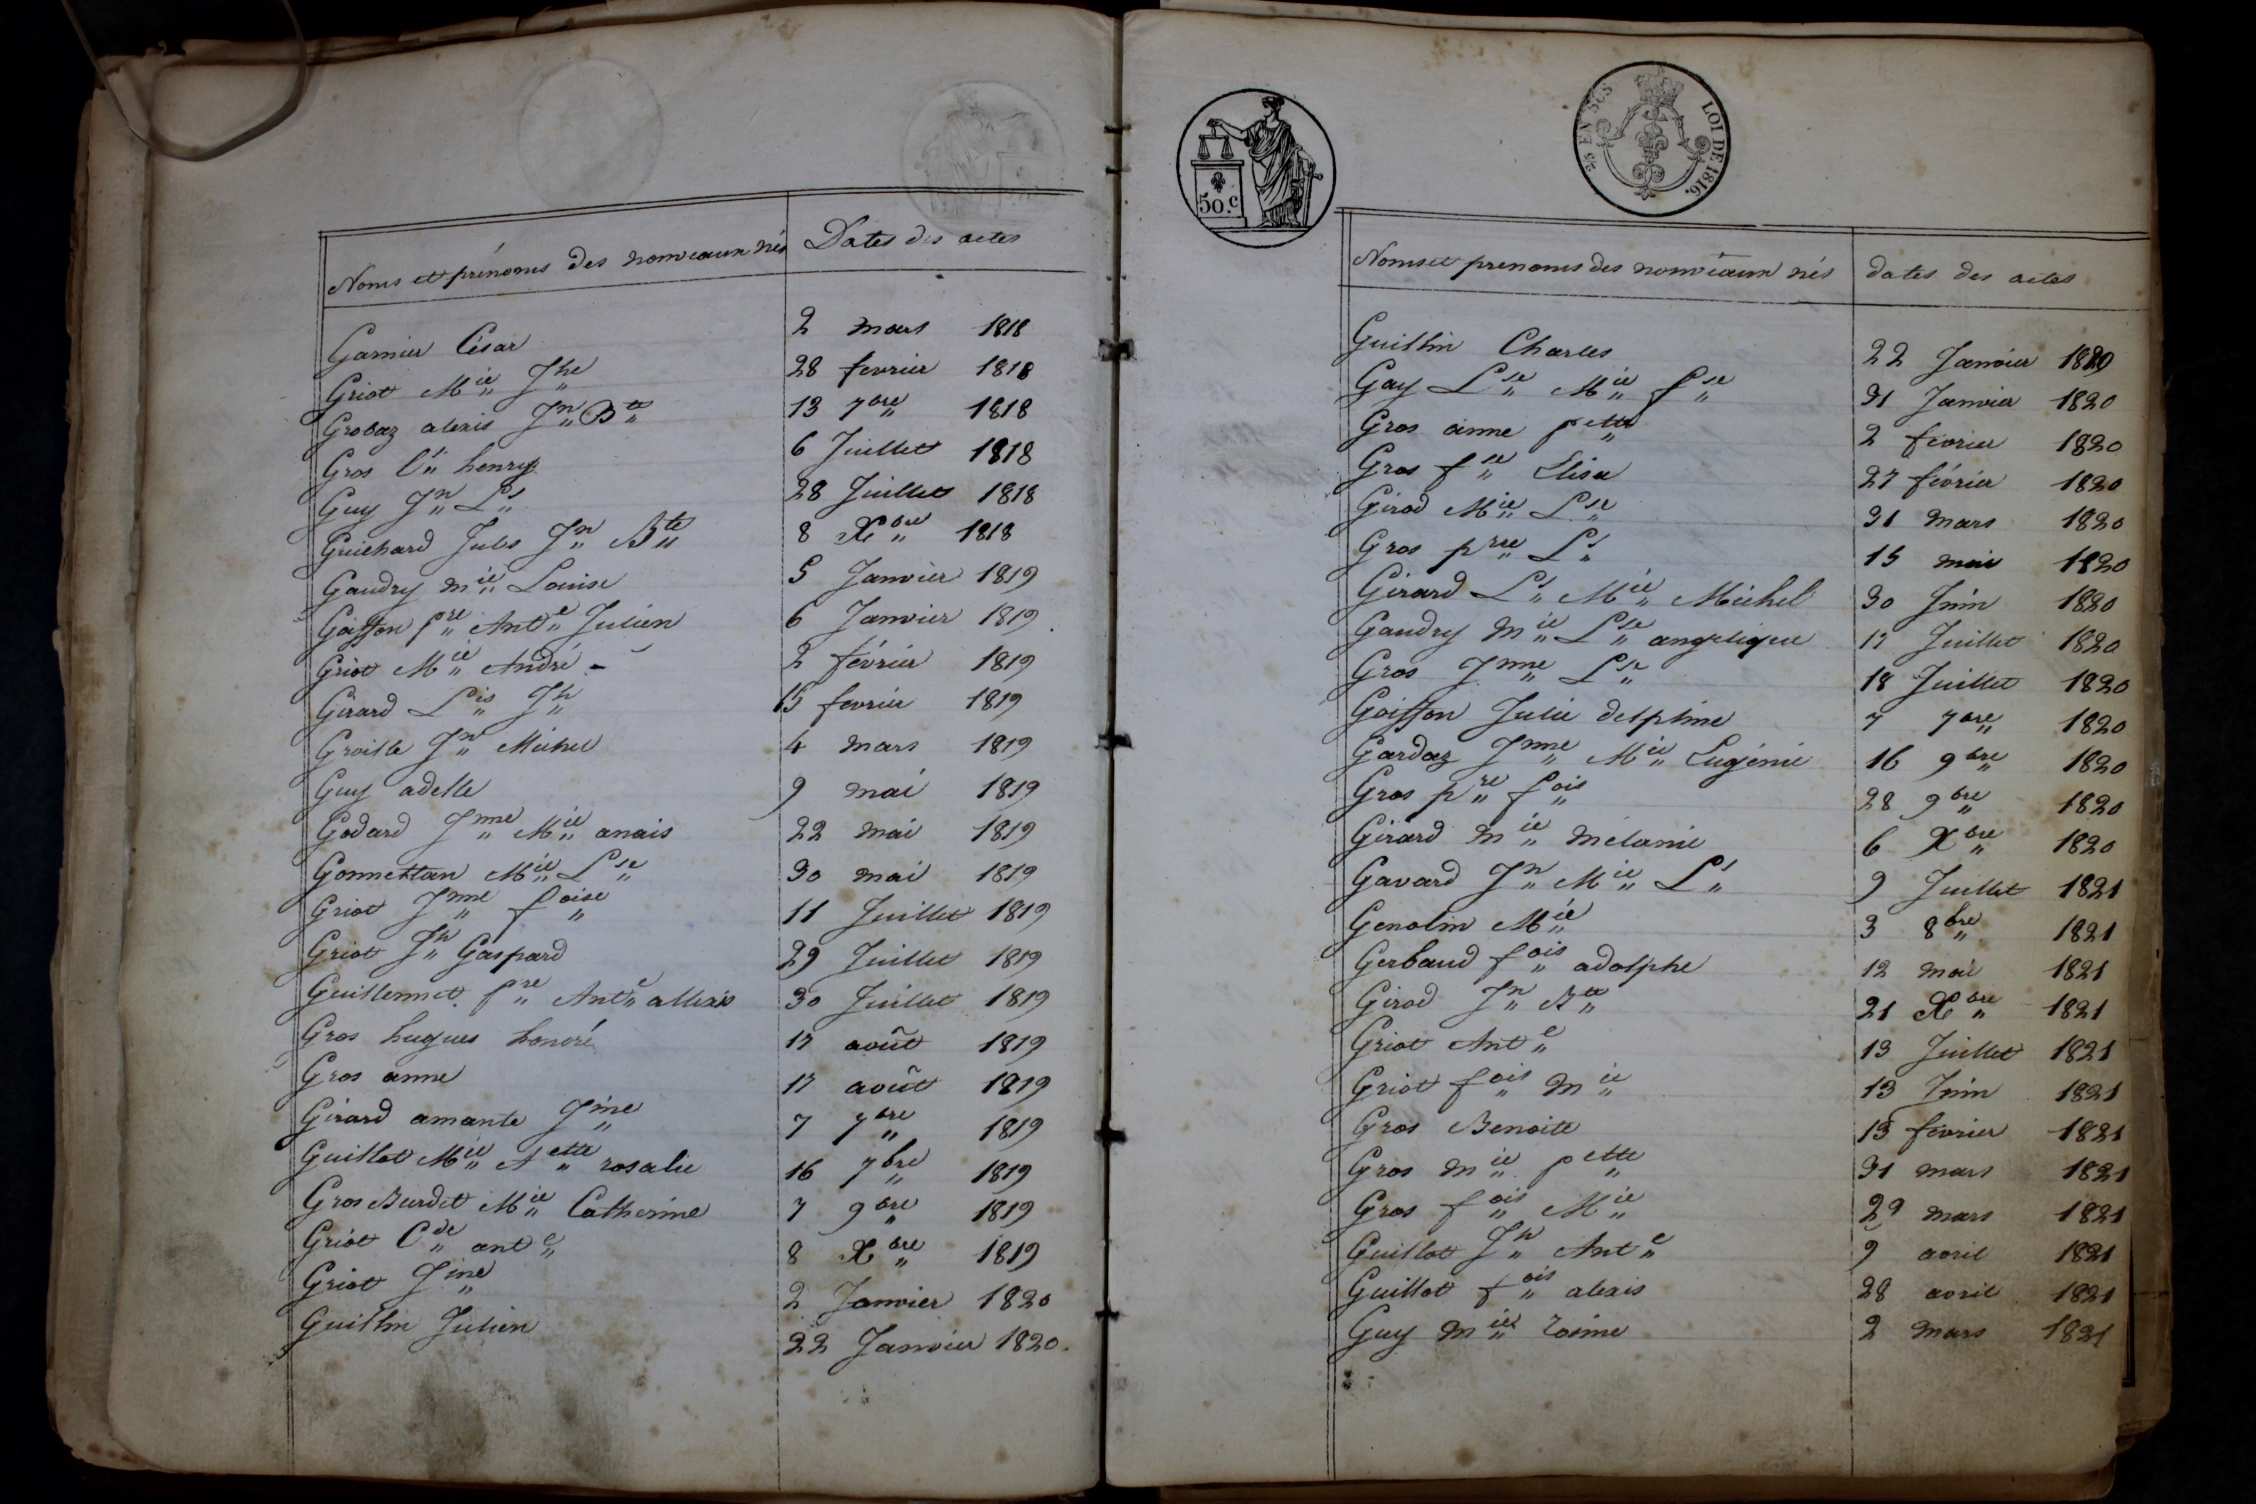 Noms et prénoms des nouveaux nés Dates des actes
Garnier César 2 mars 1818
Griot Mie Jhe 28 fevrier 1818
Grobaz alexis Jn Bte 13 7bre 1818
Gros henry 6 Juillet 1818
Guy Jn Ls 28 Juillet 1818
Guichard Jules Jn Bte 8 Xbre 1818
Gaudry mie Louise 5 Janvier 1819
Goiffon pre Ante Julien 6 Janvier 1819
Griot Mie André 2 février 1819
Girard Lis Jh 15 fevrier 1819
Groille Jn Michel 4 mars 1819
Guy adelle 9 mai 1819
Godard Jnne Mie anais 22 mai 1819
Gonnettan Mie Lse 30 mai 1819
Griot Jnne foise 11 Juillet 1819
Griot Jn Gaspard 29 Juillet 1819
Guillermet pre Ante allexis 30 Juillet 1819
Gros hugues honoré 17 août 1819
Gros anne 17 août 1819
Girard amante Jine 7 7bre 1819
Guillot Mie Aette rosalie 16 7bre 1819
Gros Burdet Mie Catherine 7 9bre 1819
Griot Cde ante 8 Xbre 1819
Griot Jine 2 Janvier 1820
Guillin Julien 22 Janvier 1820
50.c
EN SUS LOI DE 1816.
Noms et prenoms des nouvéaux nés dates des actes
Guillin Charles 22 Janvier 1820
Gay Lse Mie fse 31 Janvier 1820
Gros anne pette 2 fevrier 1820
Gros fse Elisa 27 février 1820
Girod Mie Lse 31 mars 1820
Gros prre Ls 15 mai 1820
Girard Ls Mie Michel 30 Juin 1820
Gaudry mie Lse angelique 17 Juillet 1820
Gros Jnne Lse 18 Juillet 1820
Goiffon Julie delphine 7 7bre 1820
Gardaz Jnne Mie Eugénie 16 9bre 1820
Gros pre fois 28 9bre 1820
Girard mie mélanie 6 Xbre 1820
Gavard Jn Mie Ls 9 Juillet 1821
Genolin Mie 3 8bre 1821
Gerbaud fois adolphe 12 mai 1821
Girod Jn Bte 21 Xbre 1821
Griot Ante 13 Juillet 1821
Griot fois mie 13 Juin 1821
Gros Benoite 13 février 1821
Gros mie pette 31 mars 1821
Gros fois Mie 29 mars 1821
Guillot Jn Ante 9 avril 1821
Guillot fois alexis 28 avril 1821
Guy mie rosine 2 mars 1821